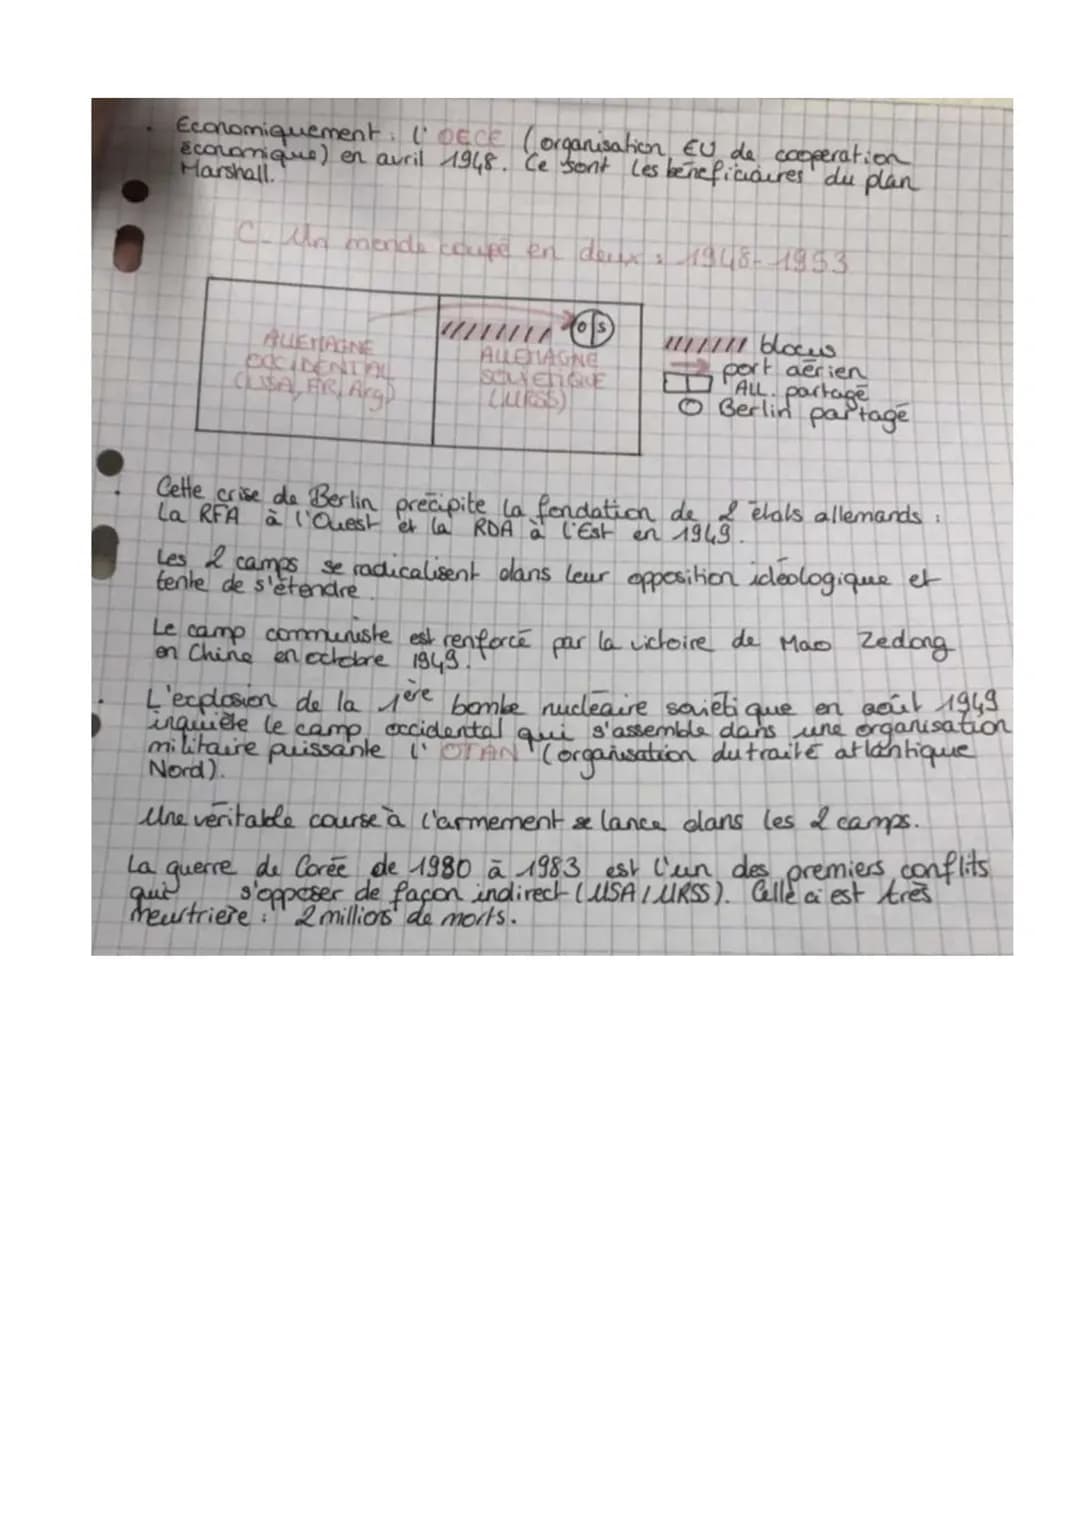 Economiquement : l'OECE (organisation EU de coopération
économique) en avril 1948. Ce sont les bénéficiaires du plan
Marshall.
C- Un monde coupé en deux : 1948-1953
ALLEMAGNE
OCCIDENTAL
(USA, FR, Ang)
O S
ALLEMAGNE
SOVIETIQUE
(URSS)
blocus
port aérien
ALL. partagé
Berlin partagé
Cette crise de Berlin précipite la fondation de 2 états allemands :
La RFA à l'Ouest et la RDA à l'Est en 1949.
Les 2 camps se radicalisent dans leur opposition idéologique et
tente de s'étendre.
Le camp communiste est renforcé par la victoire de Mao Zedong
en Chine en octobre 1949.
L'explosion de la 1ère bombe nucléaire soviétique en août 1949
inquiète le camp occidental qui s'assemble dans une organisation
militaire puissante l'OTAN (organisation du traité atlantique
Nord).
Une véritable course à l'armement se lance dans les 2 camps.
La guerre de Corée de 1980 à 1983 est l'un des premiers conflits
qui s'opposer de façon indirect (USA/URSS). Celle ci est très
meurtrière : 2 millions de morts.